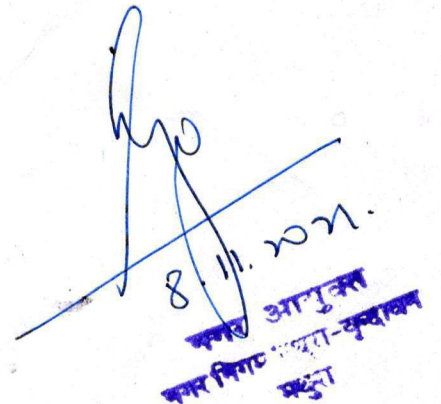 8.11.2021.
नगर आयुक्त
नगर निगम मथुरा-वृन्दावन
मथुरा